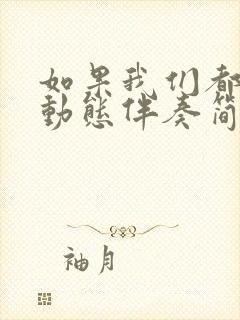 如果我们都
動態伴奏簡
袖月